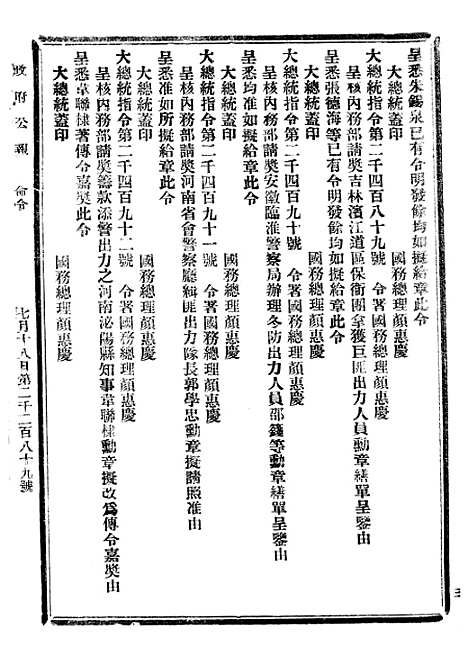 呈悉朱錫泉已有令明發餘均如擬給章此令
大總統蓋印
國務總理顏惠慶
大總統指令第二千四百八十九號　令著國務總理顏惠慶
呈核內務部請獎吉林濱江道區保衛團拿獲巨匪出力人員勳章繕單呈鑒由
呈悉張德海等已有令明發餘均如擬給章此令
大總統蓋印
國務總理顏惠慶
大總統指令第二千四百九十號　令著國務總理顏惠慶
呈核內務部請獎安徽臨淮警察局辦理冬防出力人員邵錢等勳章繕單呈鑒由
呈悉均准如擬給章此令
大總統蓋印
國務總理顏惠慶
大總統指令第二千四百九十一號　令著國務總理顏惠慶
呈核內務部請獎河南省會警察廳緝匪出力隊長郭學忠勳章擬請照准由
呈悉准如所擬給章此令
大總統蓋印
國務總理顏惠慶
大總統指令第二千四百九十二號　令著國務總理顏惠慶
呈核內務部請獎籌款添警出力之河南泌陽縣知事韋聯棣勳章擬改為傳令嘉獎由
呈悉韋聯棣著傳令嘉獎此令
大總統蓋印
國務總理顏惠慶
政府公報　命令
七月十八日第二千二百八十九號